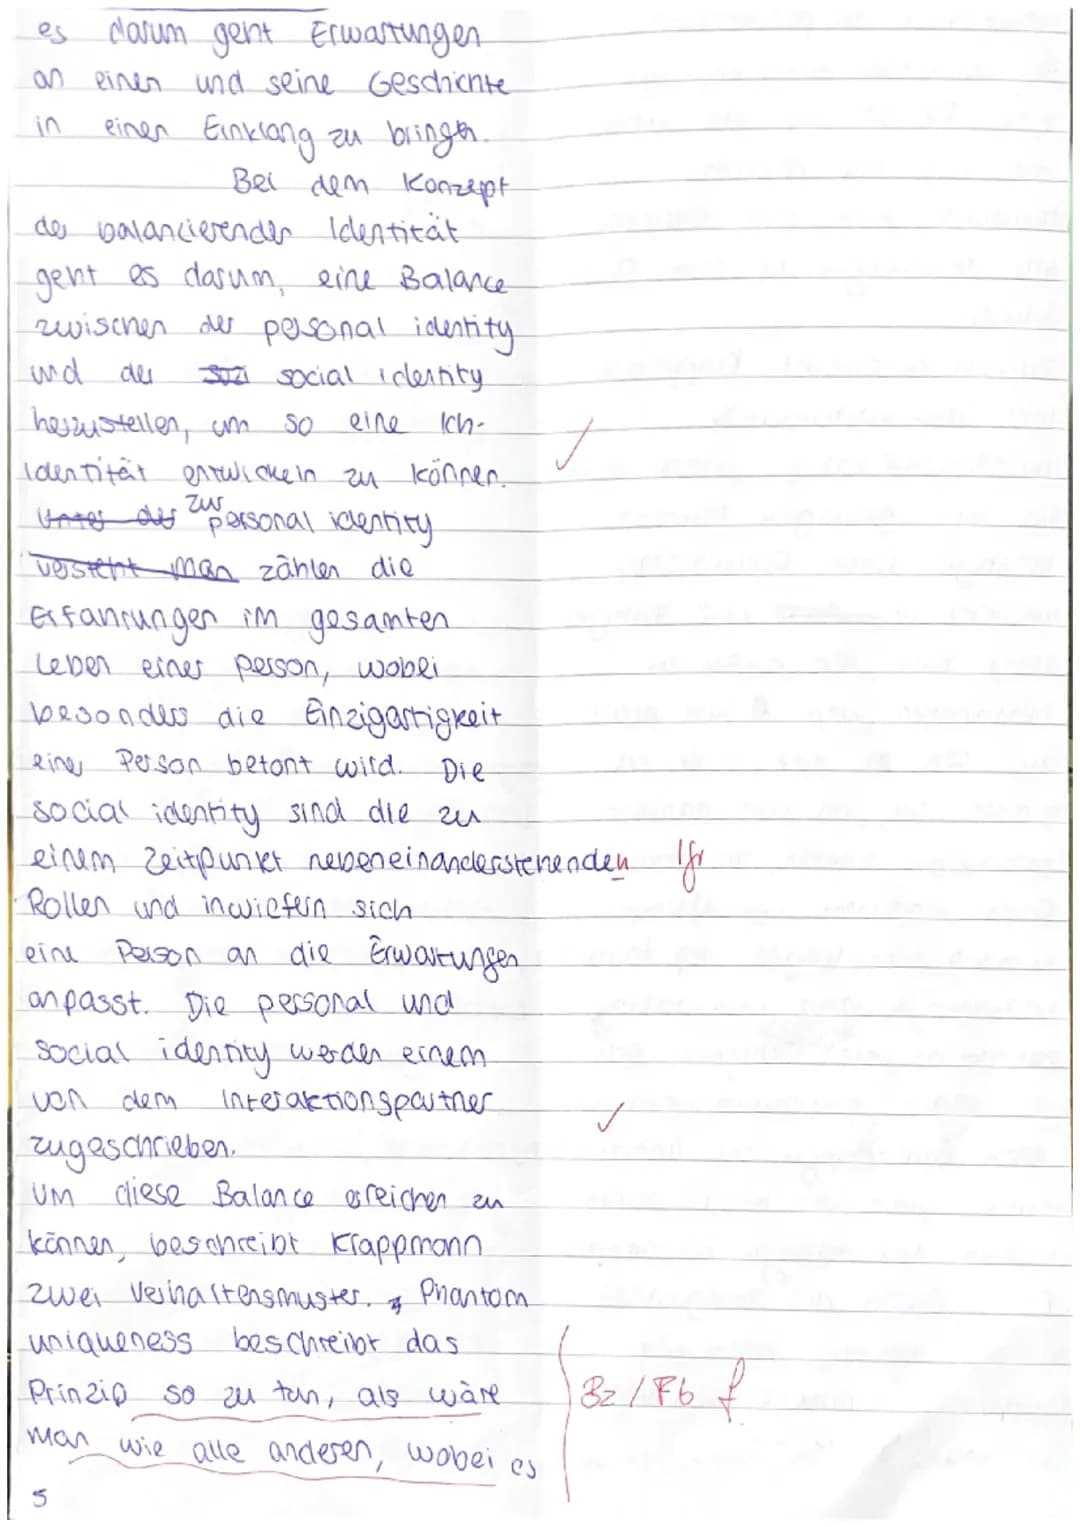 es darum geht Erwartungen
an einen und seine Geschichte
in einen Einklang zu bringen.
Bei dem Konzept
der balancierenden Identität
geht es darum, eine Balance
zwischen der personal identity
und der social identity
herzustellen, um so eine Ich-
Identität entwickeln zu können.
Unter der zur personal identity
versteht man zählen die
Erfahrungen im gesamten
Leben einer Person, wobei
besonders die Einzigartigkeit
einer Person betont wird. Die
social identity sind die zu
einem Zeitpunkt nebeneinanderstehenden
Rollen und inwiefern sich
eine Person an die Erwartungen
anpasst. Die personal und
social identity werden einem
von dem Interaktionspartner
zugeschrieben.
Um diese Balance erreichen zu
können, beschreibt Krappmann
zwei Verhaltensmuster. Phantom
uniqueness beschreibt das
Prinzip so zu tun, als wäre
Bz / Fb f
man wie alle anderen, wobei es
5